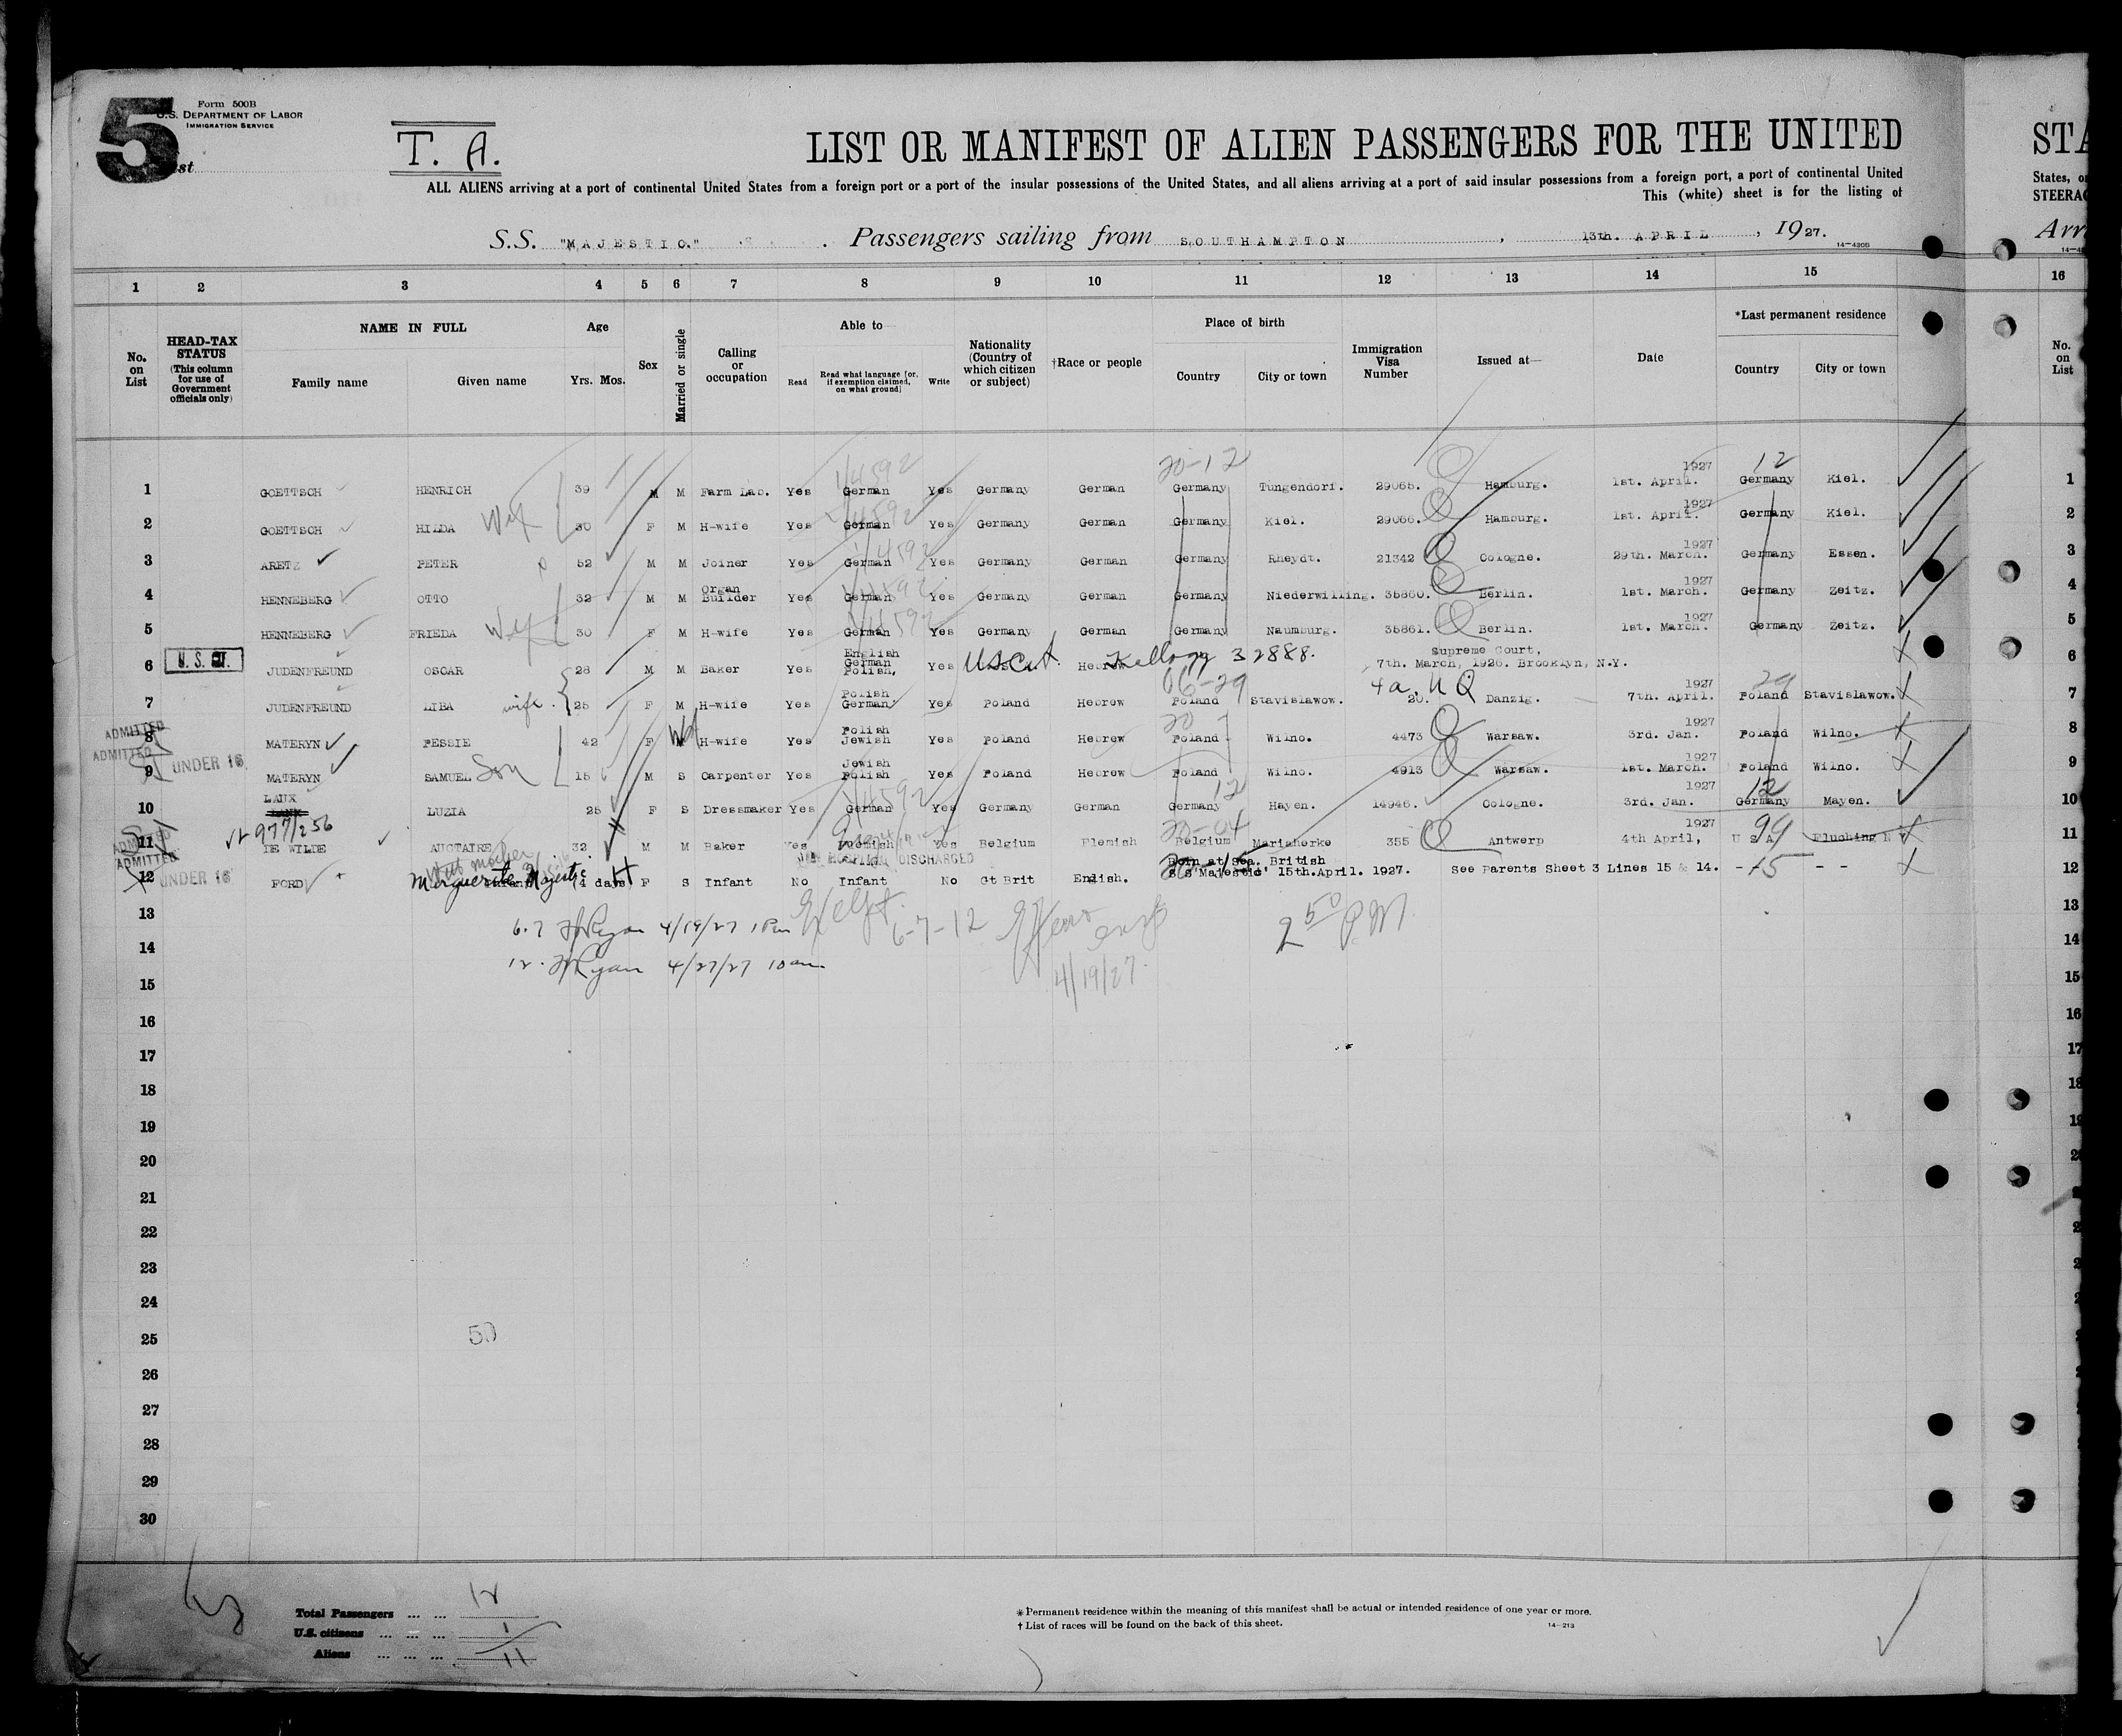 5
Form 500B
U.S. DEPARTMENT OF LABOR
IMMIGRATION SERVICE
T. A.
LIST OR MANIFEST OF ALIEN PASSENGERS FOR THE UNITED
STA
ALL ALIENS arriving at a port of continental United States from a foreign port or a port of the insular possessions of the United States, and all aliens arriving at a port of said insular possessions from a foreign port, a port of continental United
States, o
This (white) sheet is for the listing of
STEERAG
S.S. "MAJESTIC." Passengers sailing from SOUTHAMPTON, 13th. APRIL, 1927.
Arri
14-430B
1 2 3 4 5 6 7 8 9 10 11 12 13 14 15 16
No. on List
HEAD-TAX STATUS (This column for use of Government officials only)
NAME IN FULL
Family name Given name
Age
Yrs. Mos.
Sex
Married or single
Calling or occupation
Able to
Read Read what language [or, if exemption claimed, on what ground] Write
Nationality (Country of which citizen or subject)
†Race or people
Place of birth
Country City or town
Immigration Visa Number
Issued at—
Date
*Last permanent residence
Country City or town
No. on List
14592 20-12 12
1 GOETTSCH HENRICH 39 M M Farm Lab. Yes German Yes Germany German Germany Tungendorf. 29065. Hamburg. 1st. April. 1927 Germany Kiel. 1
2 GOETTSCH HILDA Wif 30 F M H-wife Yes German Yes Germany German Germany Kiel. 29066. Hamburg. 1st. April. 1927 Germany Kiel. 2
3 ARETZ PETER 52 M M Joiner Yes German Yes Germany German Germany Rheydt. 21342 Cologne. 29th. March. 1927 Germany Essen. 3
4 HENNEBERG OTTO 32 M M Organ Builder Yes German Yes Germany German Germany Niederwilling. 35860. Berlin. 1st. March. 1927 Germany Zeitz. 4
5 HENNEBERG FRIEDA Wif 30 F M H-wife Yes German Yes Germany German Germany Naumburg. 35861. Berlin. 1st. March. 1927 Germany Zeitz. 5
6 U.S. CIT. JUDENFREUND OSCAR 28 M M Baker Yes English German Polish, Yes U.S. Cit. Hebrew Kellogg 32888. Supreme Court, 7th. March, 1926. Brooklyn, N.Y. 6
06-29 4a. N Q 29
7 JUDENFREUND LIBA wife 25 F M H-wife Yes Polish German Yes Poland Hebrew Poland Stavislawow. 20. Danzig. 7th. April. 1927 Poland Stavislawow. 7
ADMITTED
8 MATERYN PESSIE 42 F Wd H-wife Yes Polish Jewish Yes Poland Hebrew Poland Wilno. 4473 Warsaw. 3rd. Jan. 1927 Poland Wilno. 8
ADMITTED
9 UNDER 16 MATERYN SAMUEL Son 15 M S Carpenter Yes Jewish Polish Yes Poland Hebrew Poland Wilno. 4913 Warsaw. 1st. March. 1927 Poland Wilno. 9
10 LAUX LUZIA 25 F S Dressmaker Yes German Yes Germany German Germany Hayen. 14946. Cologne. 3rd. Jan. 1927 Germany Mayen. 10
977/256 20-04 99
ADMITTED
11 DE WILDE AUCTAIRE 32 M M Baker Yes Flemish Yes Belgium Flemish Belgium Mariakerke 355 Antwerp 4th April, 1927 U S A Fluching N Y 11
ADMITTED With mother HOSPITAL DISCHARGED
12 UNDER 16 FORD Marguerite Majestic Infant (4 days) F S Infant No Infant No Gt Brit English. Born at Sea. British S S 'Majestic' 15th.April. 1927. See Parents Sheet 3 Lines 15 & 14. - 15 - - 12
13 13
6.7 Ryan 4/19/27 1 Pm 6-7-12 2 50 PM
14 14
12. Ryan 4/27/27 10 am 4/19/27.
15 15
16 16
17 17
18 18
19 19
20
21
22
23
24
25 50
26
27
28
29
30
Total Passengers ... ... 12
U.S. citizens ... ... ... 1
Aliens ... ... ... 11
* Permanent residence within the meaning of this manifest shall be actual or intended residence of one year or more.
† List of races will be found on the back of this sheet.
14-213